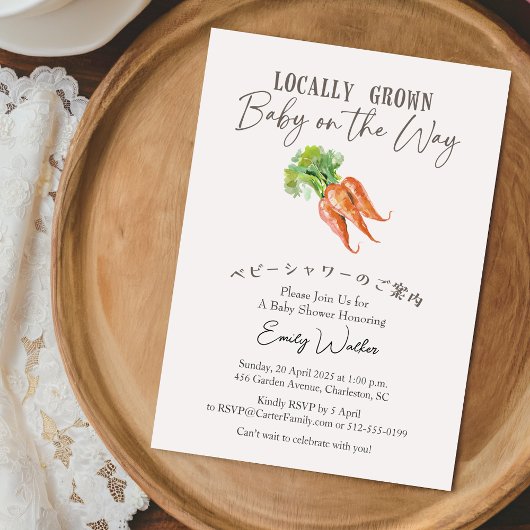 LOCALLY GROWN
Baby on the Way
ベビーシャワーのご案内
Please Join Us for
A Baby Shower Honoring
Emily Walker
Sunday, 20 April 2025 at 1:00 p.m.
456 Garden Avenue, Charleston, SC
Kindly RSVP by 5 April
to RSVP@CarterFamily.com or 512-555-0199
Can't wait to celebrate with you!